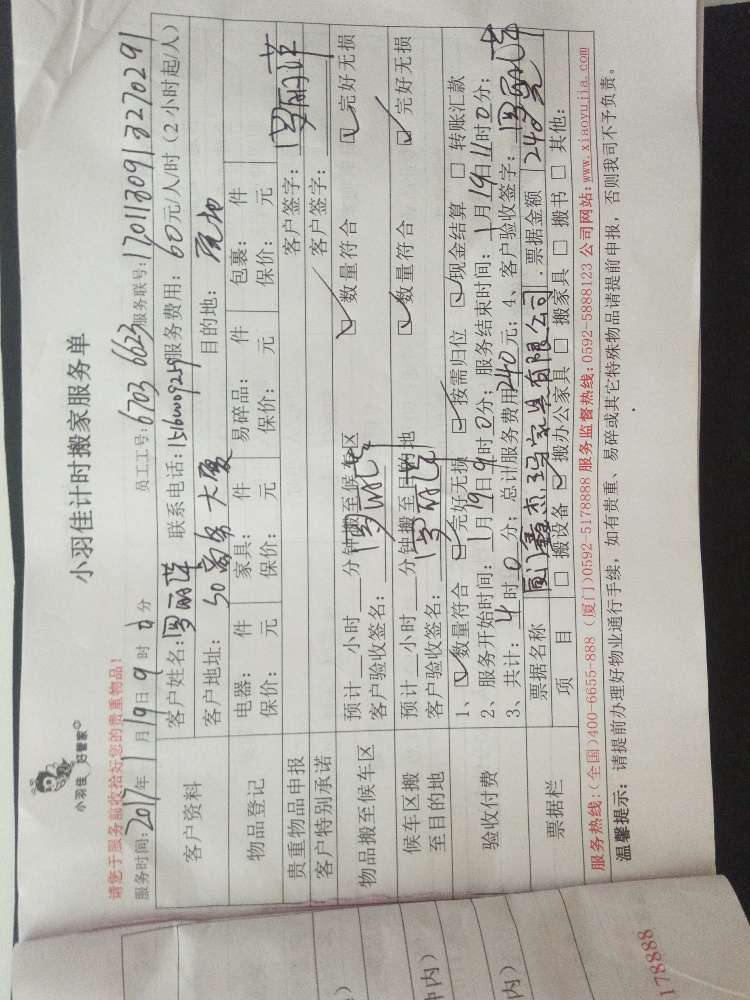 小羽佳 好管家
小羽佳计时搬家服务单
请您于服务前收拾好您的贵重物品!
服务时间:2017年1月19日9时0分 员工工号:6703 6623 服务联号:
客户资料 客户姓名: 联系电话: 服务费用:60元/人/时(2小时起/人)
客户地址:50商务大厦 目的地:
物品登记 电器: 件 家具: 件 易碎品: 件 包裹: 件
保价: 元 保价: 元 保价: 元 保价: 元
贵重物品申报 客户签字:
客户特别承诺 客户签字:
物品搬至候车区 预计__小时__分钟搬至候车区 ☑数量符合 ☑完好无损
客户验收签名:
候车区搬至目的地 预计__小时__分钟搬至目的地 ☑数量符合 ☑完好无损
客户验收签名:
验收付费 1、☑数量符合 ☑完好无损 ☑按需归位 ☑现金结算 □转账汇款
2、服务开始时间:1月19日9时0分;服务结束时间:1月19日11时0分;
3、共计:4时0分;总计服务费用240元;4、客户验收签字:
票据栏 票据名称 家具有限公司 票据金额 240元
项 目 □搬设备 ☑搬办公家具 □搬家具 □搬书 □其他:
服务热线:(全国)400-6655-888 (厦门)0592-5178888 服务监督热线:0592-5888123 公司网站:www.xiaoyujia.com
温馨提示:请提前办理好物业通行手续,如有贵重、易碎或其它特殊物品请提前申报,否则我司不予负责。
钟内)
内)
178888